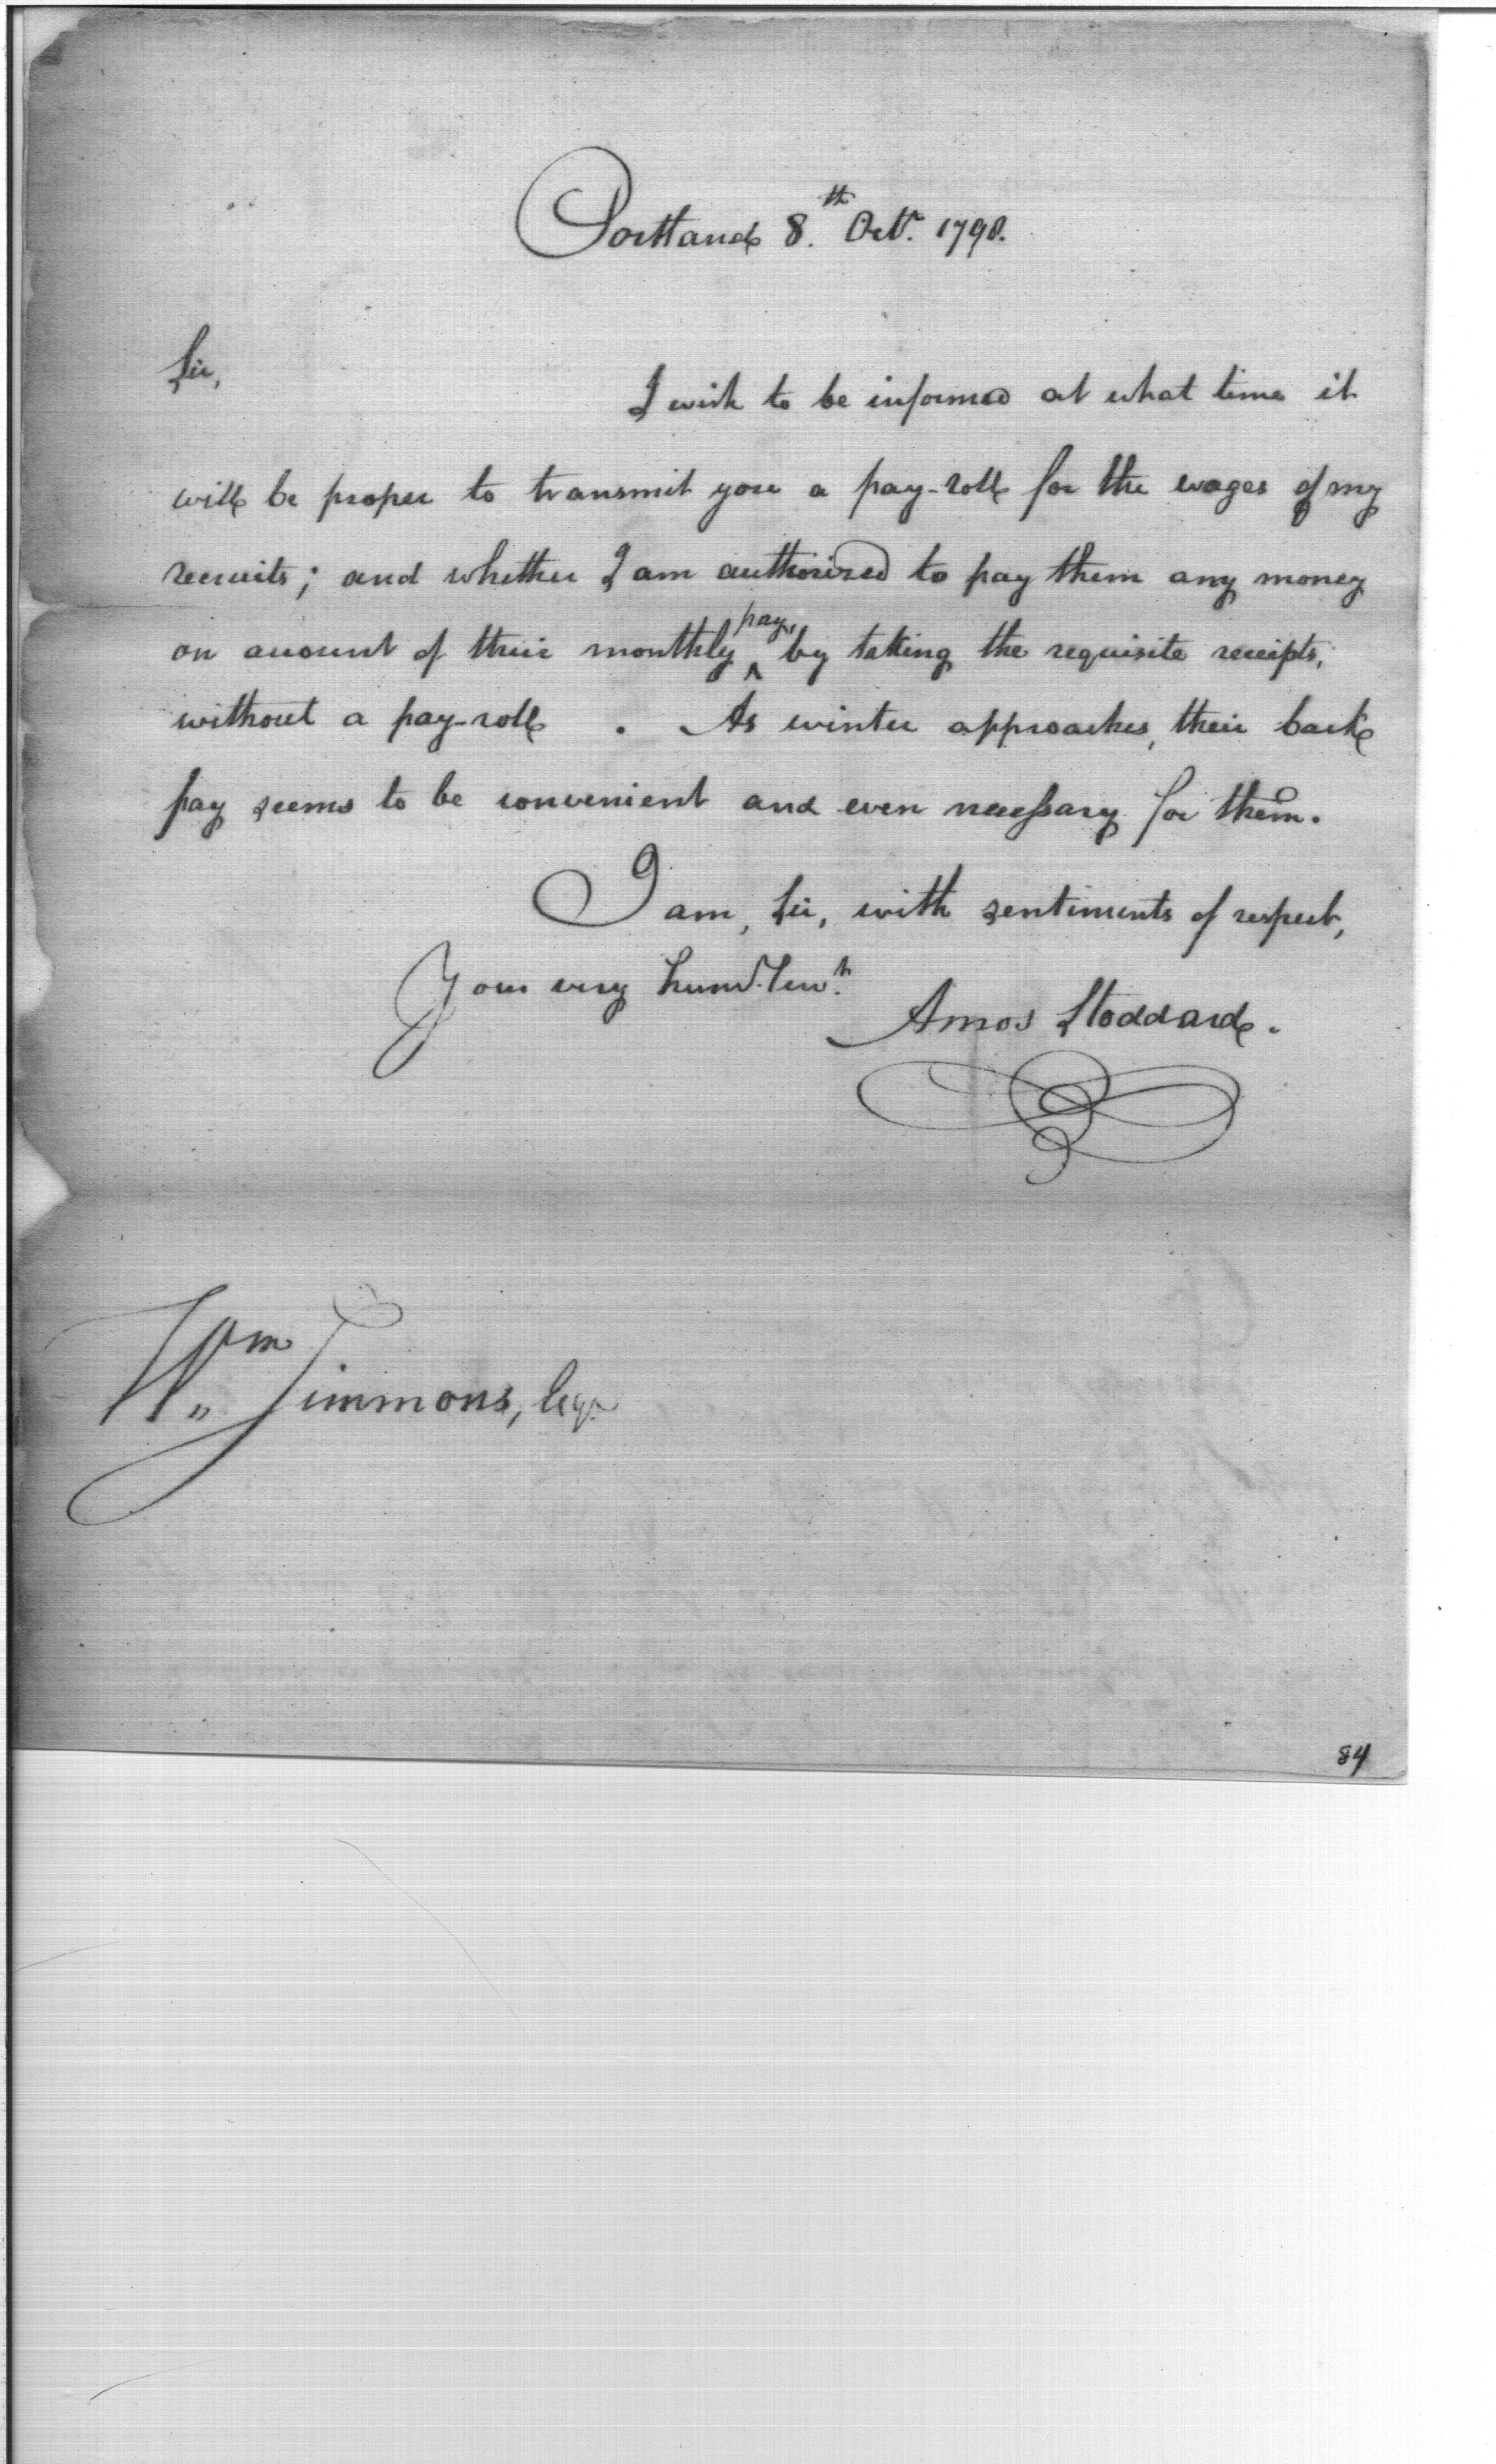 Portland 8.th Octr. 1798.
Sir,
I wish to be informed at what time it
will be proper to transmit you a pay-roll for the wages of my
recruits; and whether I am authorized to pay them any money
on account of their monthly ^pay, by taking the requisite receipts,
without a pay-roll . As winter approaches, their back
pay seems to be convenient and even necessary for them.
I am, Sir, with sentiments of respect,
Your very humb. Servt.
Amos Stoddard.
Wm Simmons, Esqr.
84